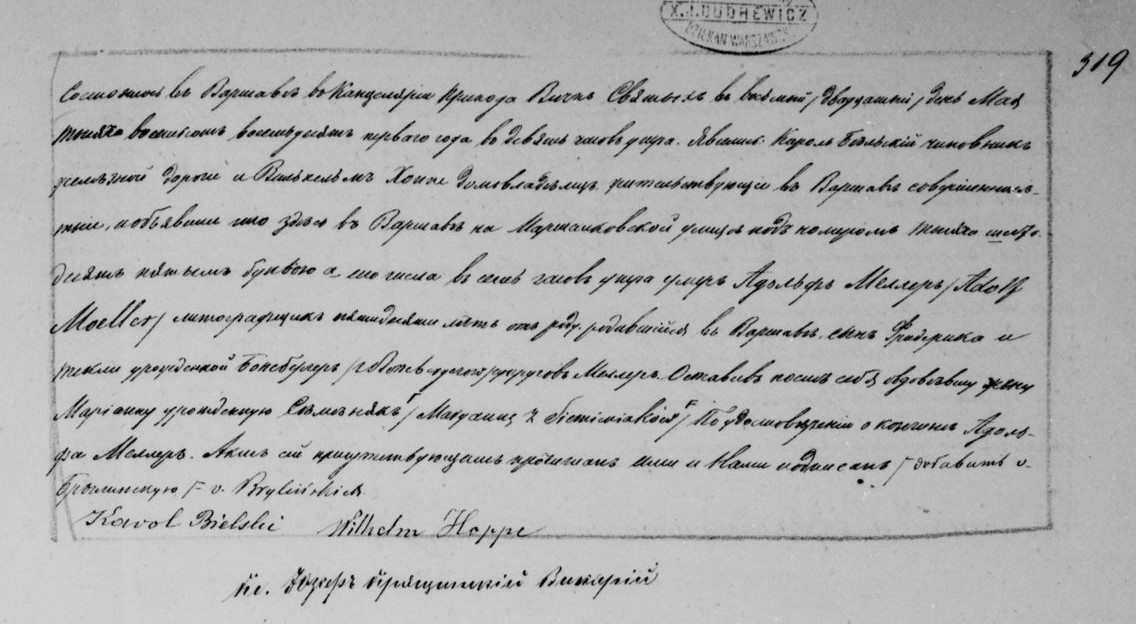 X. J. DUDREWICZ
DZIEKAN WARSZAWSKI
319
Состоялось въ Варшавѣ въ Канцеляріи прихода Всѣхъ Святыхъ въ восьмой /двадцатый/ день Мая
тысяча восемьсотъ восемьдесятъ перваго года въ девять часовъ утра. Явились: Кароль Бѣльскій чиновникъ
желѣзной дороги и Вильгельмъ Хоппе домовладѣлецъ жительствующіе въ Варшавѣ совершеннолѣ-
тніе, и объявили что здѣсь въ Варшавѣ на Маршалковской улицѣ подъ номеромъ тысяча шесть-
десятъ пятымъ буквою а сего числа въ семь часовъ утра умеръ Адольфъ Меллеръ /Adolf
Moeller/ литографщикъ пятидесяти лѣтъ отъ роду, родившійся въ Варшавѣ, сынъ Фридерика и
Текли урожденной супруговъ Меллеръ. Оставивъ послѣ себя овдовѣвшую жену
Маріанну урожденную /Maryannę z / По удостовѣреніи о кончинѣ Адоль-
фа Меллеръ. Актъ сей присутствующимъ прочитанъ ими и Нами подписанъ / добавить v.
Брылинскую /- v. Brylińskich
Karol Bielski Wilhelm Hoppe
Кс. Іозефъ Викарій